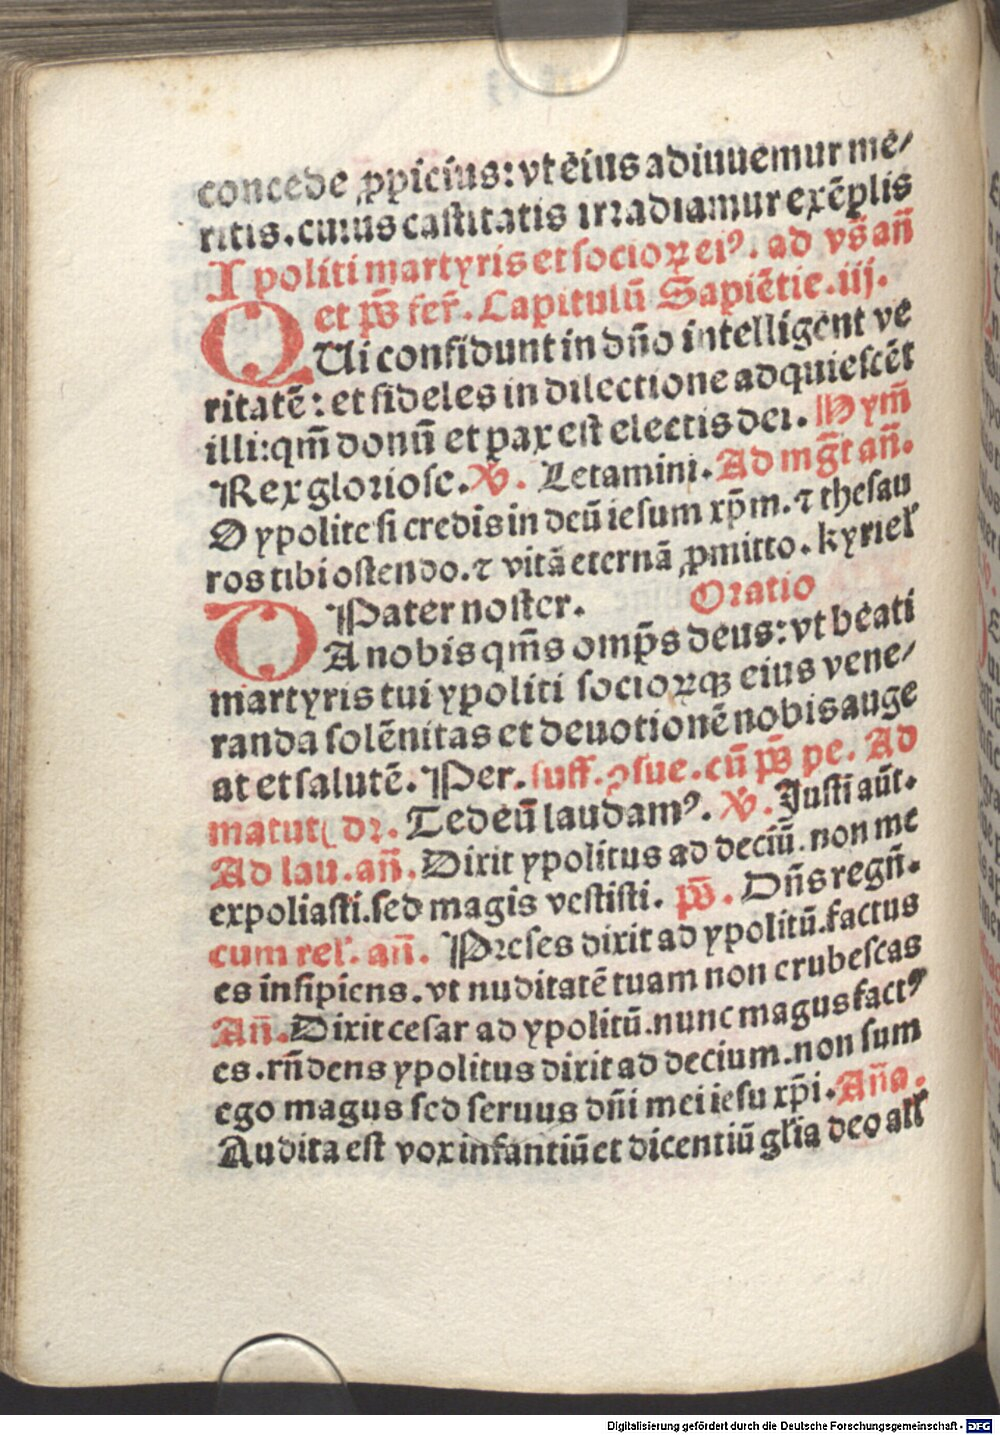 concede ꝓpicius: vt eius adiuuemur me/
ritis. cuius castitatis irradiamur exẽplis
Ipoliti martyris et socioꝝ ei⁹. ad vs̃ añ
et ps̃ fer̃. Capitulũ Sapiẽtie. iij.
QUi confidunt in dño intelligent ve
ritatẽ: et fideles in dilectione adquiescẽt
illi: qm̃ donũ et pax est electis dei. Hym̃
Rex gloriose. ℣. Letamini. Ad mg̃t añ.
O ypolite si credis in deũ iesum xp̃m. ⁊ thesau
ros tibi ostendo. ⁊ vitã eternã ꝓmitto. kyriel̃
Pater noster. Oratio
DA nobis qm̃s omp̃s deus: vt beati
martyris tui ypoliti socioꝝqꝫ eius vene/
randa solẽnitas et deuotionẽ nobis auge
at et salutẽ. Per. suff. ꝯsue. cũ ps̃ pe. Ad
matut̃ dr. Te deũ laudam⁹. ℣. Justi aũt.
Ad lau. añ. Dixit ypolitus ad deciũ. non me
expoliasti. sed magis vestisti. ps̃. Dñs regñ.
cum rel̃. añ. Preses dixit ad ypolitũ. factus
es insipiens. vt nuditatẽ tuam non erubescas
Añ. Dixit cesar ad ypolitũ. nunc magus fact⁹
es. rñdens ypolitus dixit ad decium. non sum
ego magus sed seruus dñi mei iesu xp̃i. Aña.
Audita est vox infantiũ et dicentiũ gl̃ia deo all̃
Digitalisierung gefördert durch die Deutsche Forschungsgemeinschaft - DFG